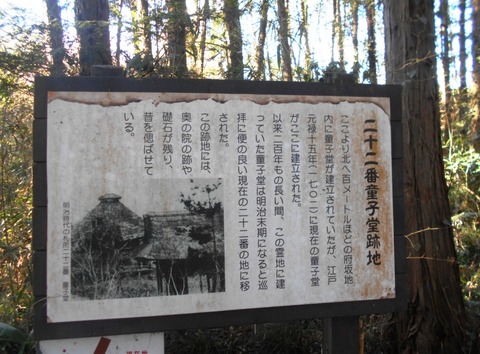 二十二番童子堂跡地
ここより北へ百メートルほどの府坂地
内に童子堂が建立されていたが、江戸
元禄十五年(一七〇二)に現在の童子堂
がここに建立された。
以来二百年もの長い間、この霊地に建
っていた童子堂は明治末期になると巡
拝に便の良い現在の二十二番の地に移
された。
この跡地には、
奥の院の跡や
礎石が残り、
昔を偲ばせて
いる。
明治時代の札所二十二番 童子堂